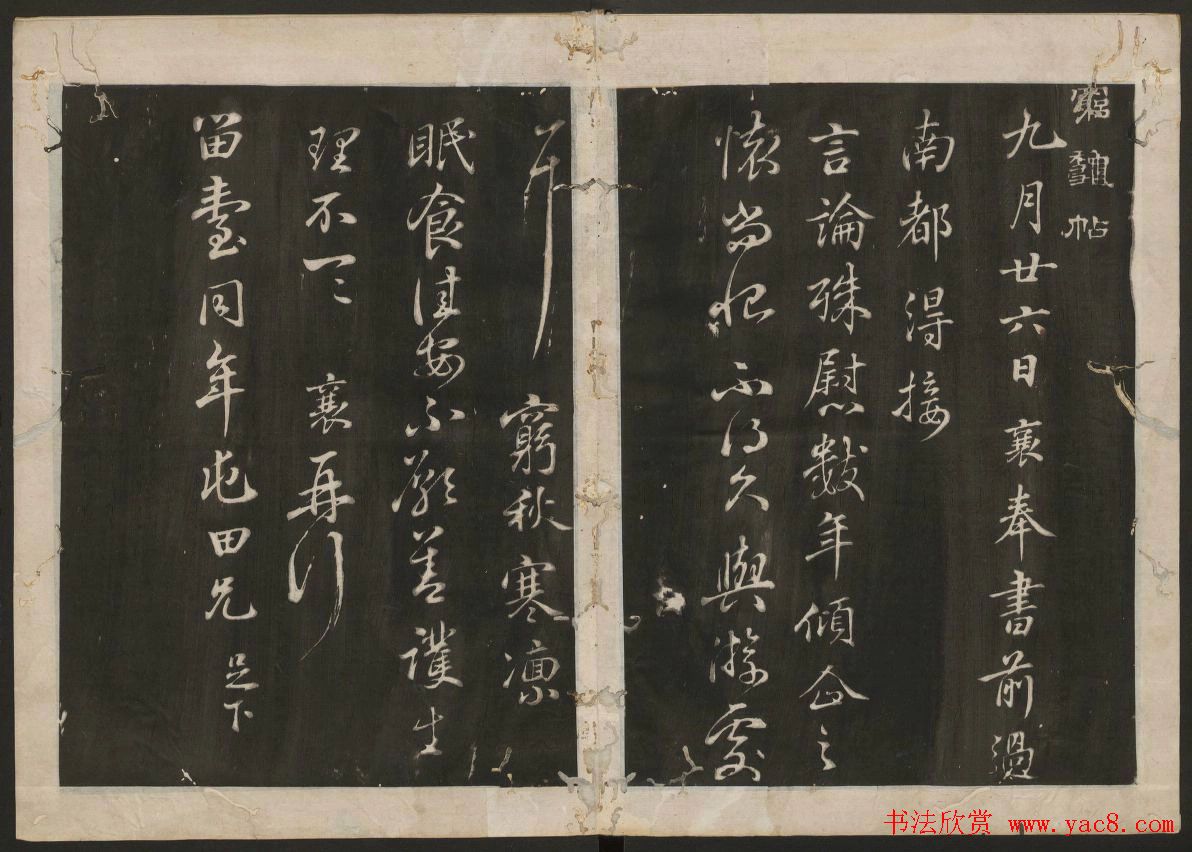 帖
九月廿六日襄奉書前過
南都得接
言論殊慰數年傾企之
懷尚恨不得久與游處
耳 窮秋寒凛
眠食佳安不善護生
理不一一 襄再拜
留臺同年屯田兄 足下
书法欣赏 www.yac8.com